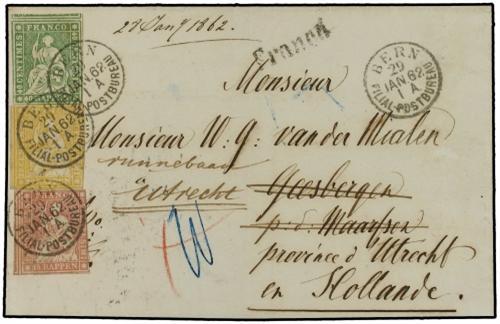 28 Jany 1862.
Franco
FRANCO
40 CENTIMES
40 RAPPEN
BERN
29
JAN 62
1 A
FILIAL-POSTBUREAU
BERN
29
JAN 62
1 A
FILIAL-POSTBUREAU
Monsieur
BERN
29
JAN 62
1 A
FILIAL-POSTBUREAU
Monsieur W. G. van der Mialen
Utrecht
Geesbergen
p. d. Maarssen
FRANCO
BERN
29
JAN 62
1 A
FILIAL-POSTBUREAU
15 RAPPEN
province d'Utrecht
en Hollande.